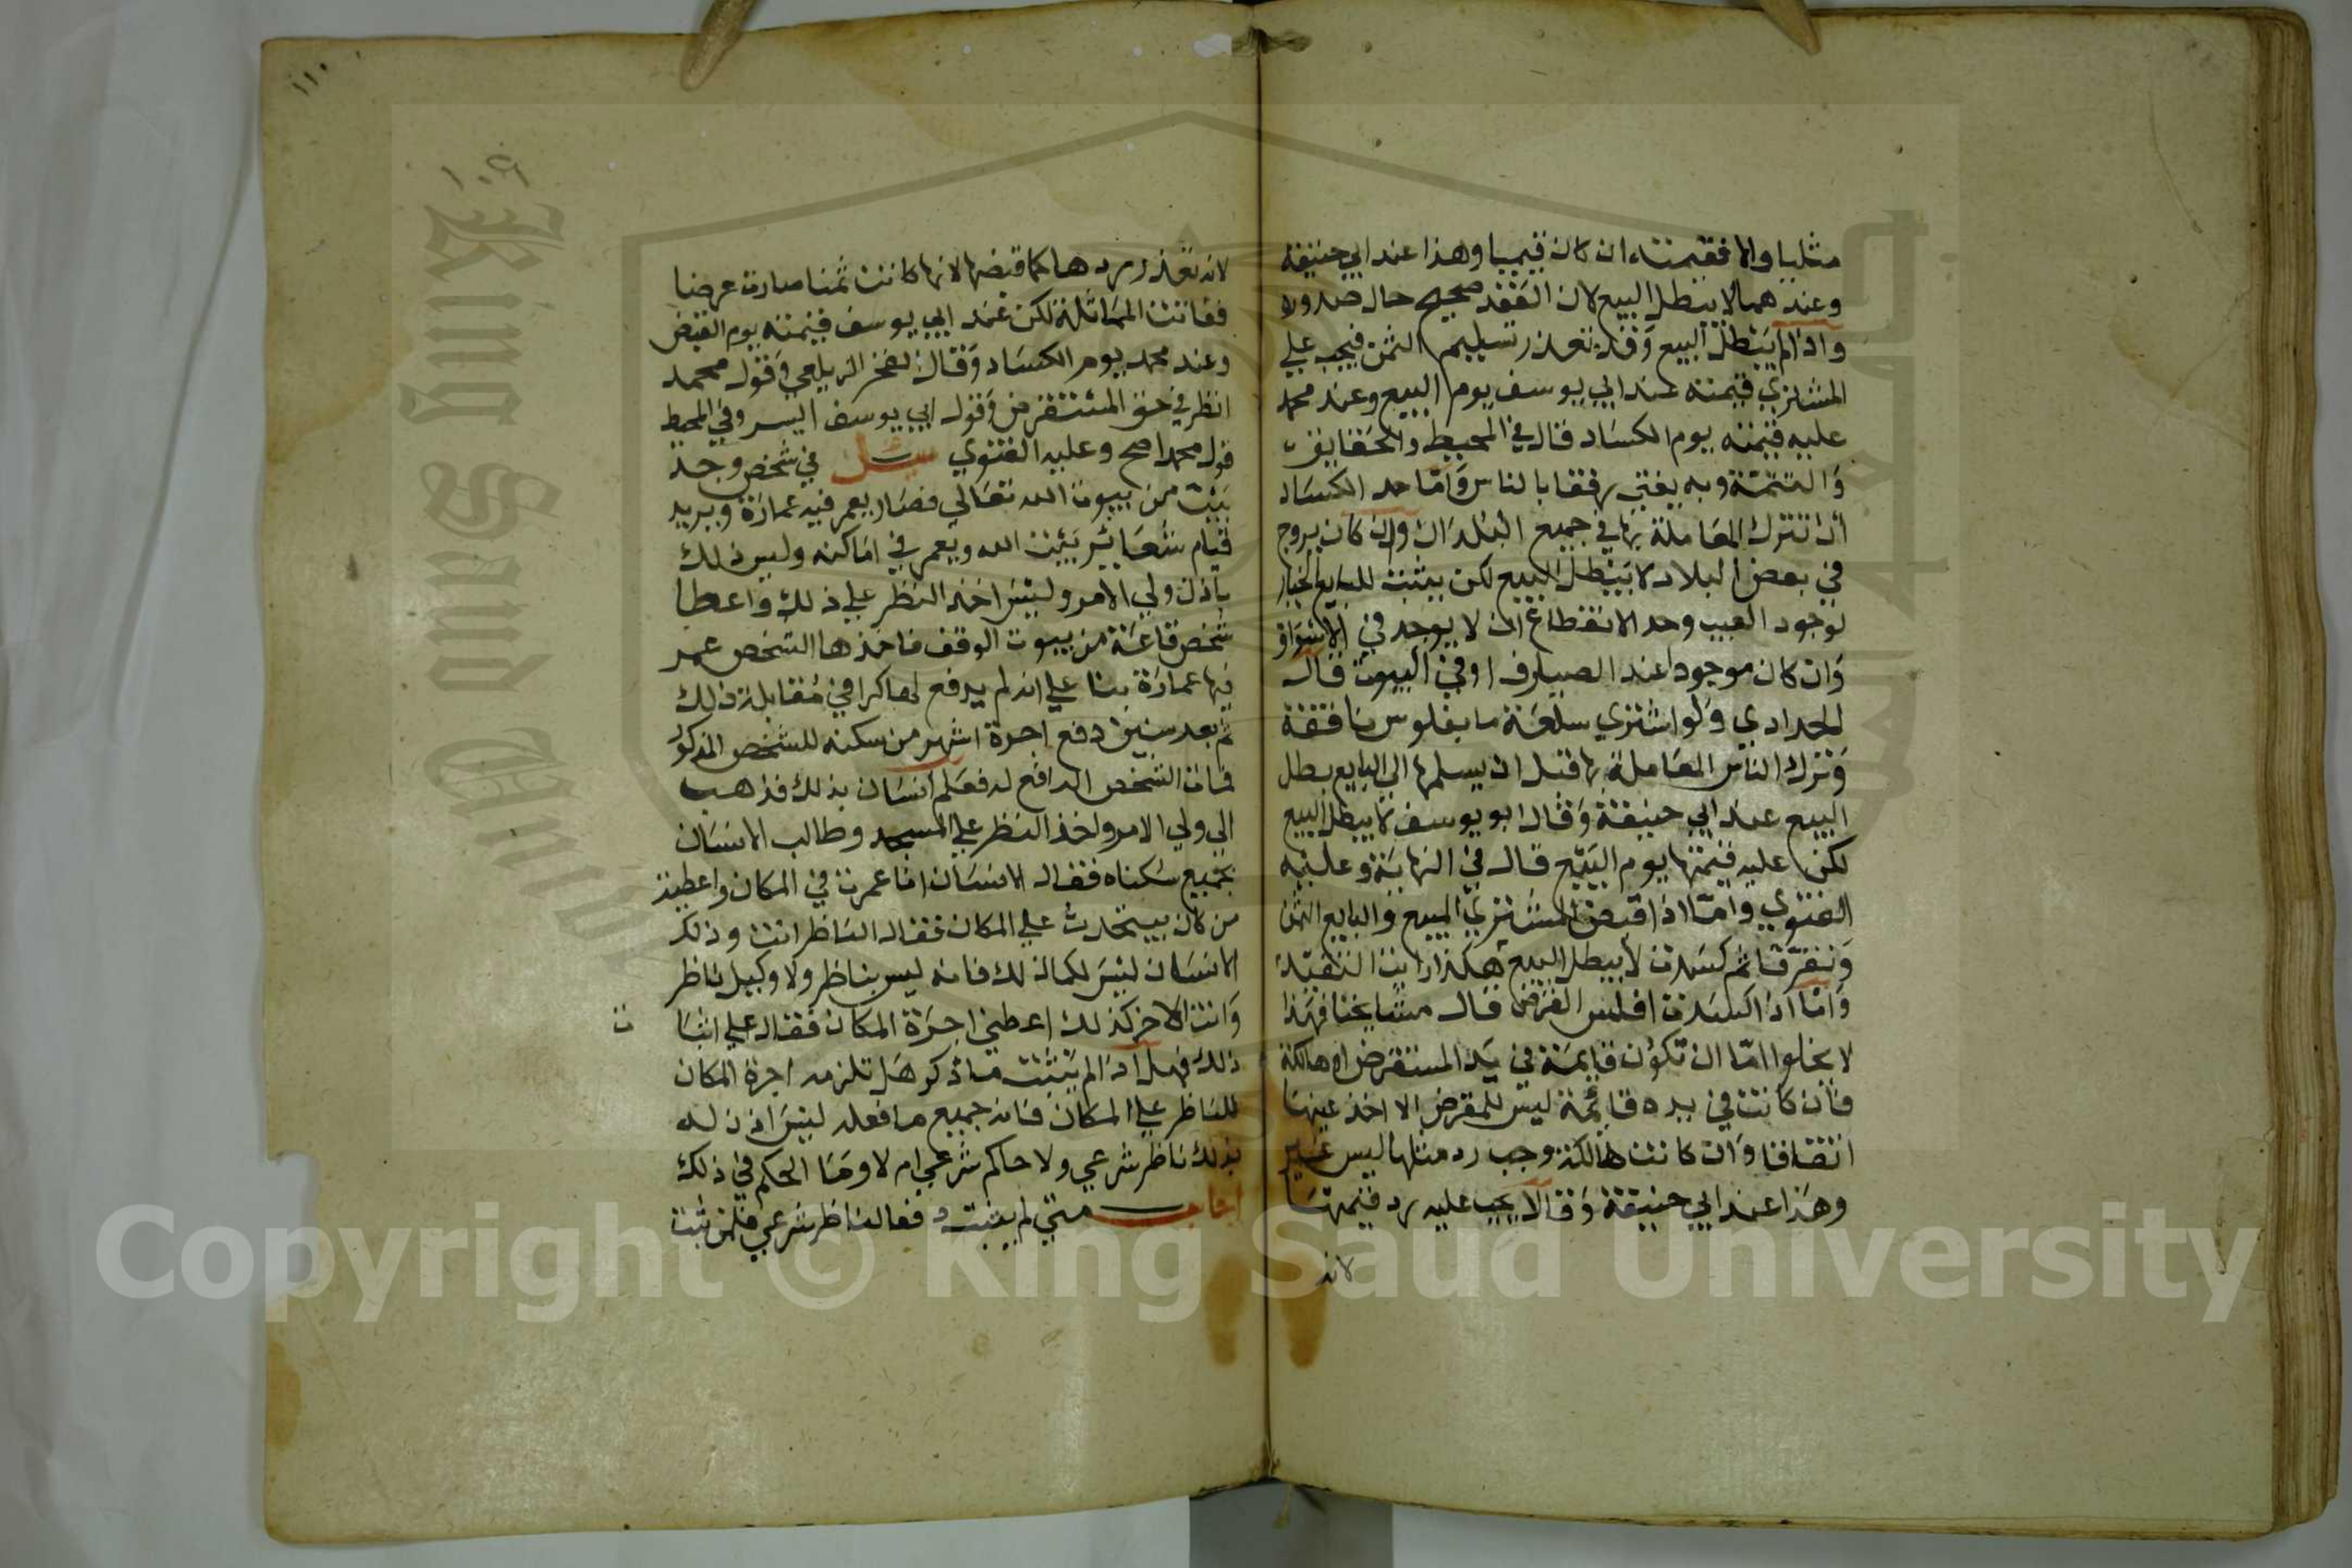 مثليا والا فقيمته ان كان قيميا وهذا عند ابي حنيفة
وعندهما لا يبطل البيع لان العقد صحيح حال صدوره
واذا لم يبطل البيع وقد تعذر تسليم الثمن فيجب علي
المشتري قيمته عند ابي يوسف يوم البيع وعند محمد
عليه قيمته يوم الكساد قال في المحيط والحقايق
والتتمة وبه يفتي رفقا بالناس واما حد الكساد
ان تترك المعاملة بها في جميع البلدان وان كان يروج
في بعض البلاد لا يبطل البيع لكن يثبت للبايع الخيار
لوجود العيب وحد الانقطاع ان لا يوجد في الاسواق
وان كان موجودا عند الصيارف او في البيوت قال
الحدادي ولو اشتري سلعة ما بفلوس نافقة
وترك الناس المعاملة بها قبل ان يسلمها الي البايع بطل
البيع عند ابي حنيفة وقال ابو يوسف لا يبطل البيع
لكن عليه قيمتها يوم البيع قال في النهاية وعليه
الفتوي واما اذا قبض المشتري المبيع والبايع الثمن
وتفرقا ثم كسدت لا يبطل البيع هكذا رايت النقيد
واما اذا اكسدت افلس القرض قال مشايخنا فهذا
لا يخلوا اما ان تكون قايمة في يد المستقرض او هالكة
فان كانت في يده قائمة ليس للمقرض الا اخذ عينها
اتفاقا وان كانت هالكة وجب رد مثلها ليس غير
وهذا عند ابي حنيفة وقالا يجب عليه رد قيمتها
لانه
١١٠
١٠٩
لانه تعذر ردها كما قبضها لانها كانت ثمنا صارت عرضا
ففاتت المماثلة لكن عند ابي يوسف قيمته يوم القبض
وعند محمد يوم الكساد وقال الفخر الزيلعي وقول محمد
انظر في حق المستقرض وقول ابي يوسف ايسر وفي المحيط
قول محمد اصح وعليه الفتوي سئل في شخص وجد
بيت من بيوت الله تعالي فصار يعمر فيه عمارة ويريد
قيام شعاير بيت الله ويعمر في اماكنه وليس ذلك
باذن ولي الامر وليس اخذ النظر علي ذلك واعطا
شخص قاعة من بيوت الوقف فاخذها الشخص عمر
فيها عمارة بنا علي انه لم يدفع لها كرا في مقابلة ذلك
ثم بعد سنين دفع اجرة اشهر من سكنه للشخص المذكور
فمات الشخص الدافع له فعلم انسان بذلك فذهب
الي ولي الامر واخذ النظر علي المسجد وطالب الانسان
بجميع سكناه فقال الانسان انا عمرت في المكان واعطيت
من كان يتحدث علي المكان فقال الناظر انت وذلك
الانسان ليس لكما ذلك فانه ليس بناظر ولا وكيل ناظر
وانت الاخر كذلك اعطني اجرة المكان فقال علي اثبا
ت
ذلك فهل اذا لم يثبت ما ذكر هل تلزمه اجرة المكان
للناظر علي المكان فانه جميع ما فعله ليس اذن له
بذلك ناظر شرعي ولا حاكم شرعي ام لا وما الحكم في ذلك
اجاب متي لم يثبت فعال ناظر شرعي فلن ثبت